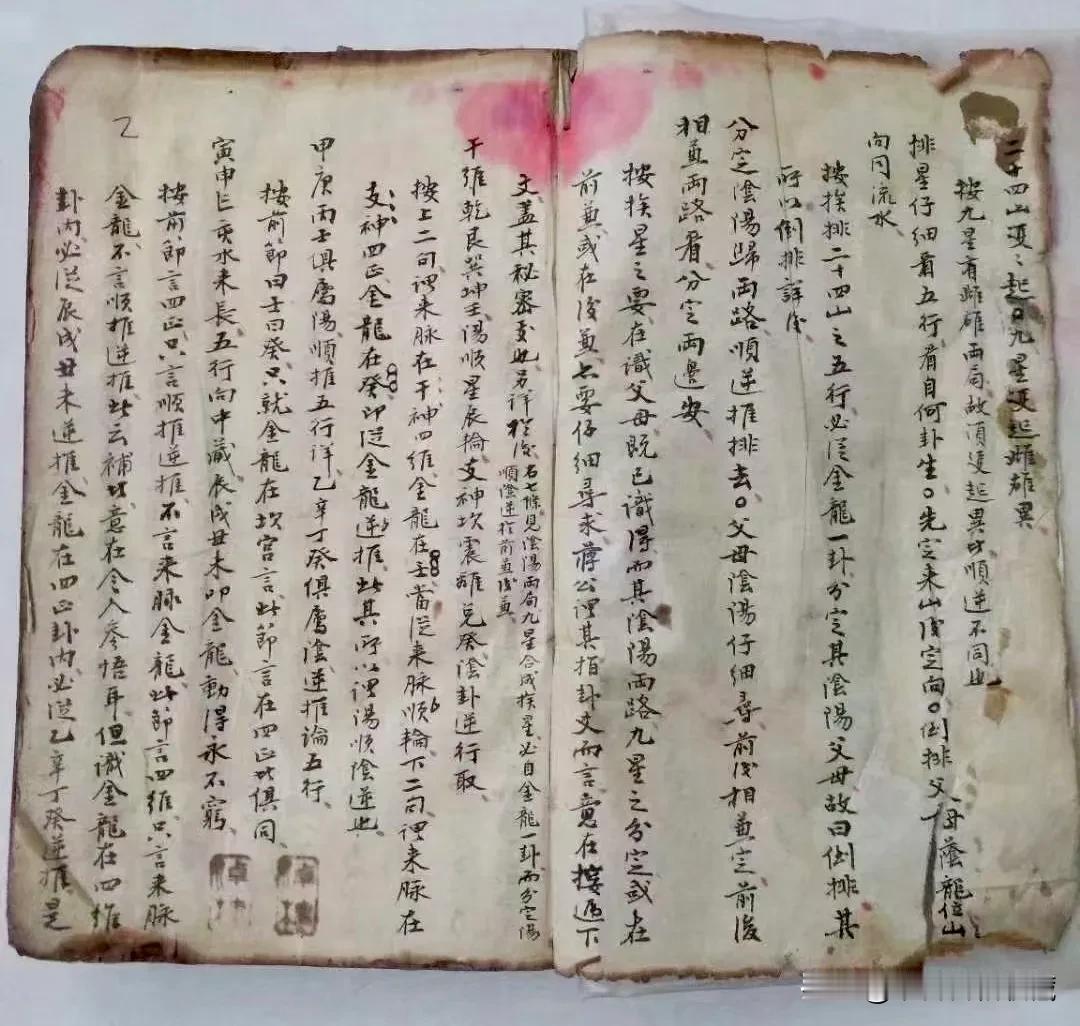 二十四山双々起〇九星双起雌雄異
按九星有雌雄兩局故須双起異此順逆不同也
排星仔細看五行看自何卦生〇先定来山後定向〇倒排父母蔭龍位山
向同流水
按挨排二十四山之五行必從金龍一卦分定其陰陽父母故曰倒排其
所以倒排詳後
分定陰陽歸兩路順逆推排去〇父母陰陽仔細尋前後相兼定前後
相兼兩路看分定兩邊安
按挨星之要在識父母既已識得而其陰陽兩路九星之分定或在
前兼或在後兼亦要仔細尋求蔣公謂其指卦爻而言意在接遞下
文盖其秘密交也另詳於後右七條見陰陽兩局九星合成挨星必自金龍一卦而分定陽
順陰逆於前兼後兼
干維乾艮巽坤壬陽順星辰輪支神坎震離兌癸陰卦逆行取
按上二句謂来脉在干神四維金龍在壬當從来脉順輪下二句謂来脉在
支神四正金龍在癸即從金龍逆推此其所以謂陽順陰逆也
甲庚丙壬俱属陽順推五行詳乙辛丁癸俱属陰逆推論五行
按前節曰壬曰癸只就金龍在坎宫言此節言在四正此俱同
寅申巳亥水来長五行向中藏辰戌丑未叩金龍動得永不窮
按前節言四正只言順推逆推不言来脉金龍此節言四維只言来脉
金龍不言順推逆推此云補此意在令人參悟耳但識金龍在四維
卦内必從辰戌丑未逆推金龍在四正卦内必從乙辛丁癸逆推是